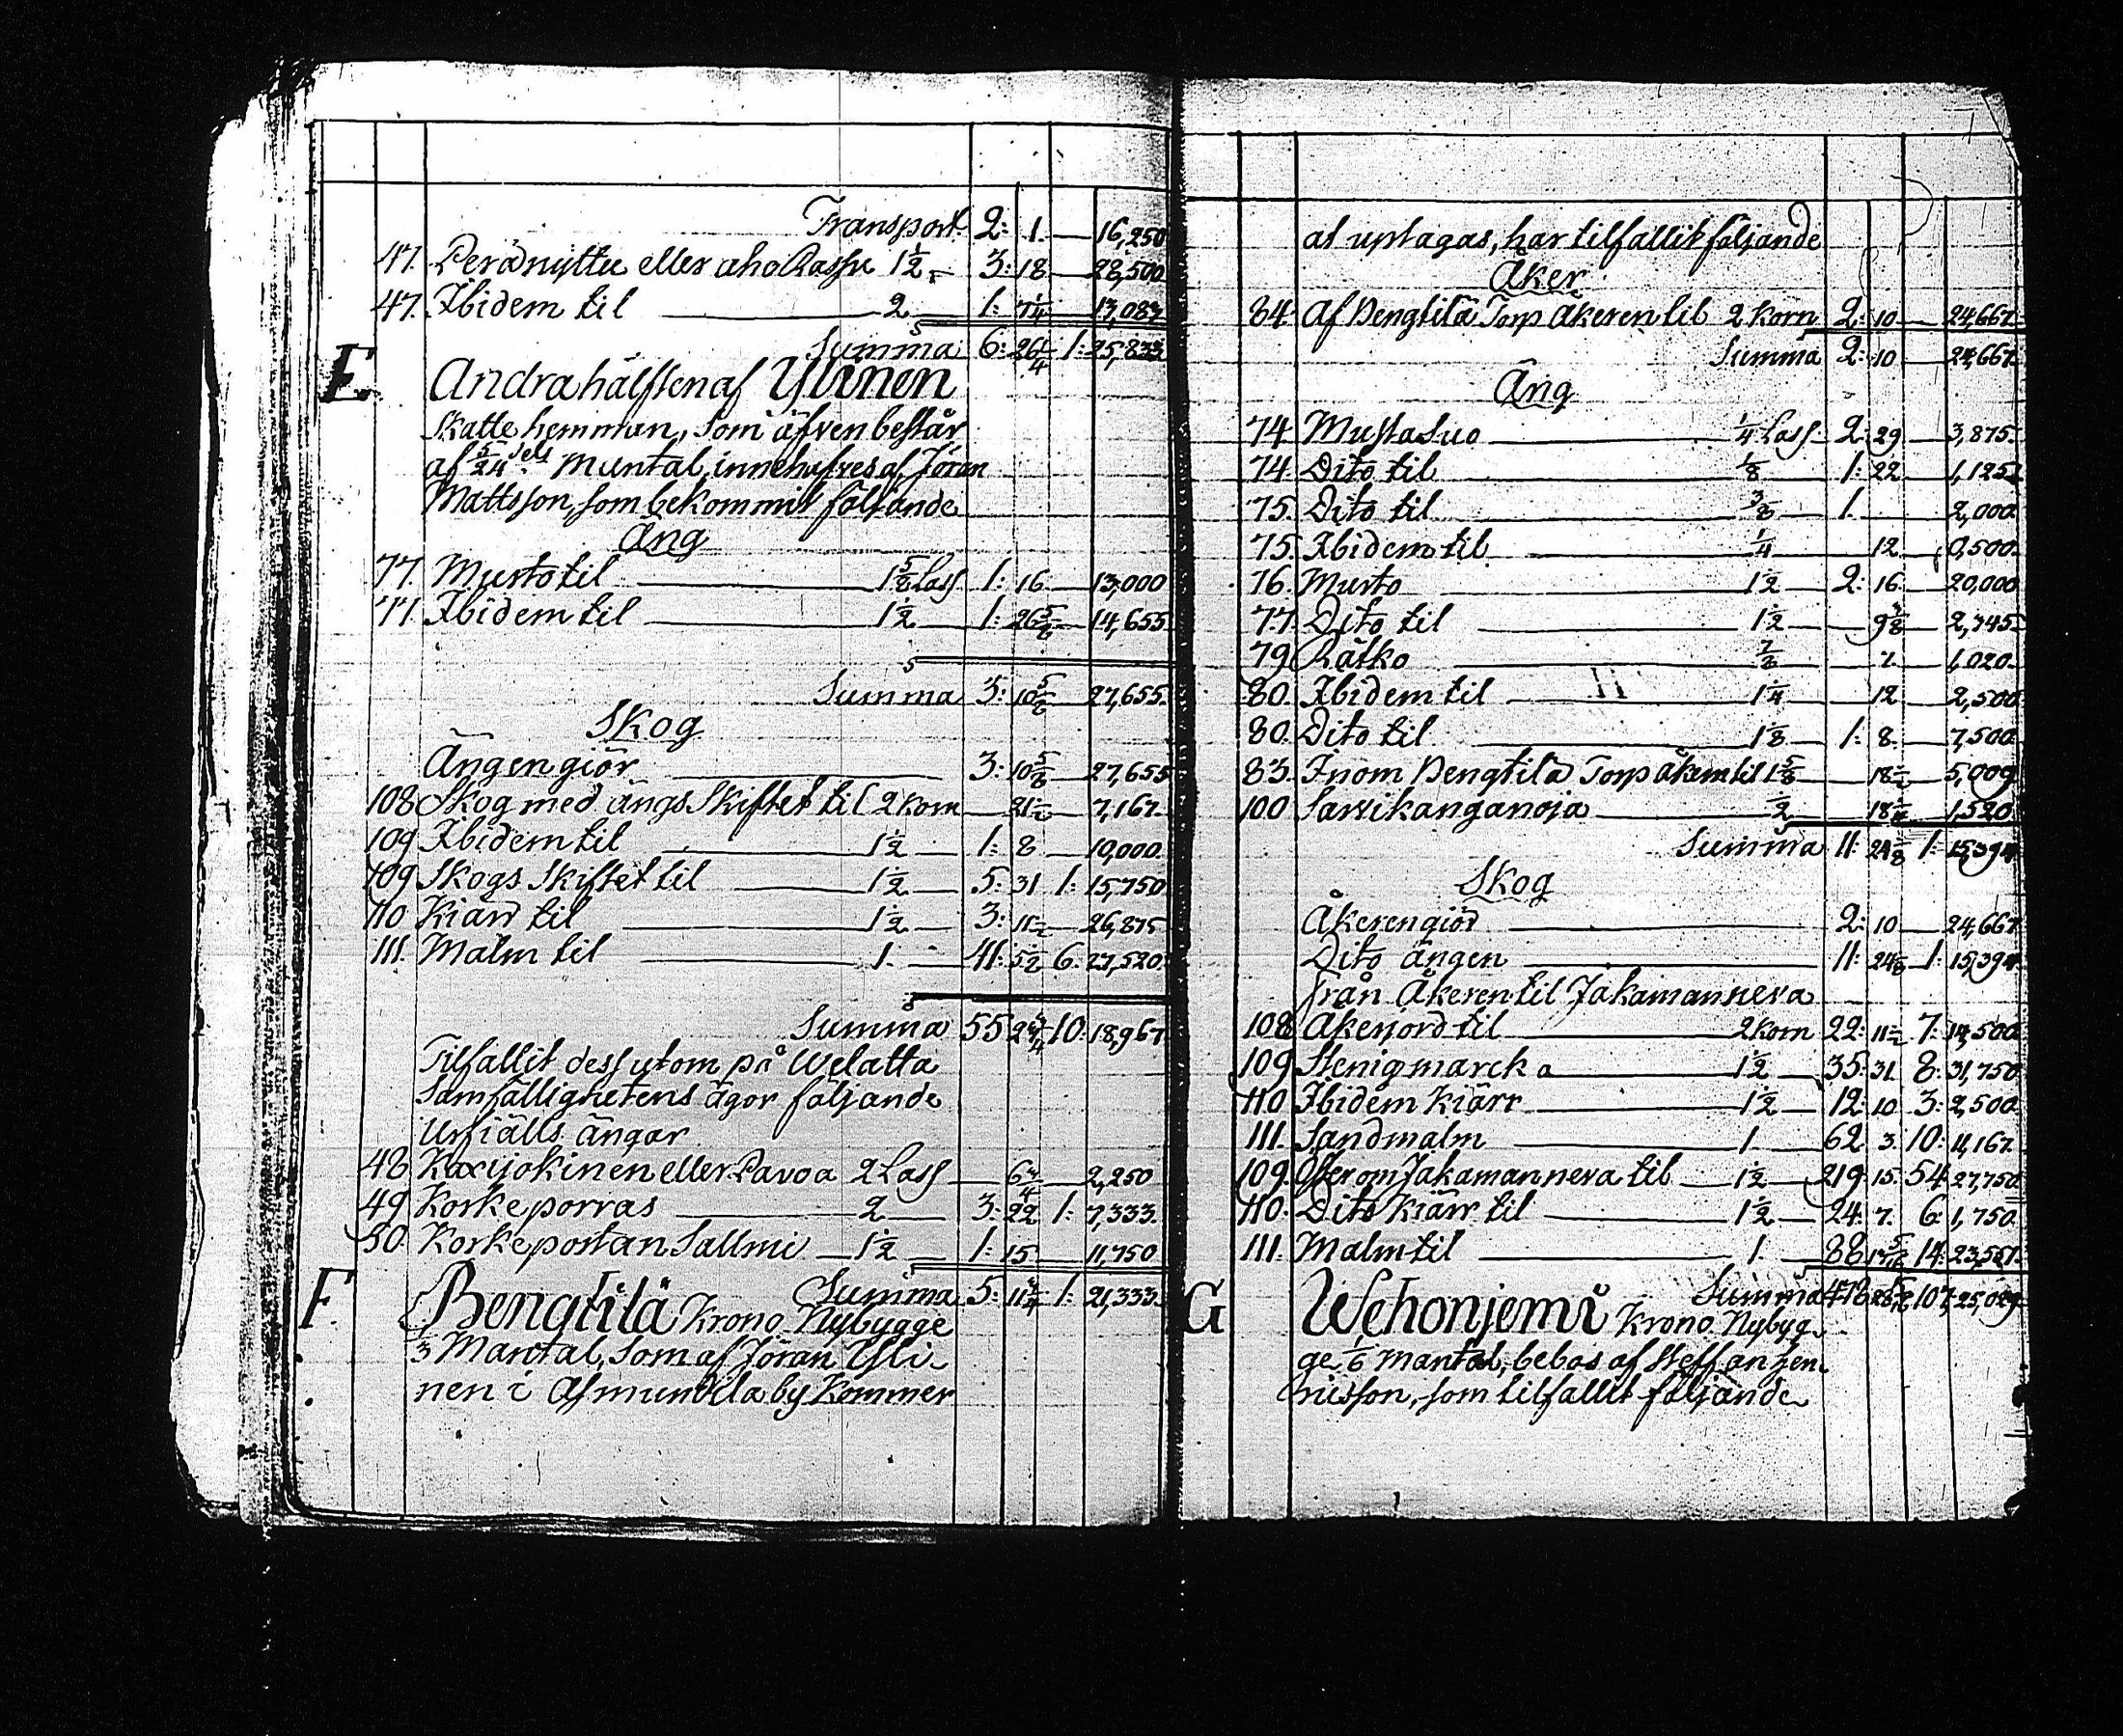 Transport 2: 1. — 16,250
47. Perånyttu eller aho Lassu 1½ 3: 18 — 28,500
47. Ibidem til — 2 — 1: 7¼ 13,083
Summa 6: 26¼ 1: 25,833
E. Andra hälften af Ylinen
Skatte hemman, som äfven består
af 5/24 dels Mantal, innehafves af Jöran
Mattsson, som bekommit följande
Äng
77. Musto til — 1⅝ Lass 1: 16 — 13,000
77. Ibidem til — 1½ — 1: 26⅚ — 14,655
Summa 3: 10⅚ 27,655
Skog
Ängen giör — 3: 10⅚ — 27,655
108 Skog med ängs Skiftet til 2 korn — 21½ — 7,167
109 Ibidem til — 1½ — 1: 8 — 10,000
109 Skogs Skiftet til — 1½ — 5: 31 1: 15,750
110 Kiärr til — 1½ — 3: 11½ — 26,875
111. Malm til — 1. — 41: 5½ 6: 27,520
Summa 55 24¾ 10: 18,967
Tilfallit dessutom på Welatta
Samfällighetens ägor följande
Urfiälls ängar
48 Karijokinen eller Pavoa 2 Lass — 6¾ — 2,250
49 Korkeporras — 2 — 3: 22 1: 7,333
50. Korkeportan Sallmi — 1½ — 1: 15 — 11,750
Summa 5: 11¾ 1: 21,333
F. Bengtilä Krono Nybygge
⅓ Mantal, som af Jöran Yli-
nen i Asmundila by kommer
at uptagas, har tilfallit följande
Åker
84. Af Bengtilä Torp Åkeren til 2 korn 2: 10 — 24,667
Summa 2: 10 — 24,667
Äng
74. Mustasuo — ¼ Lass 2: 29 — 3,875
74. Dito til — ⅛ — 1: 22 — 1,125
75. Dito til — ⅜ — 1. — 2,000
75. Ibidem til — ¼ — 12 — 0,500
76. Musto — 1½ — 2: 16 — 20,000
77. Dito til — 1½ — 9⅜ — 2,345
79. Rätko — ⅞ — 7 — 1,020
80. Ibidem til — 1¼ — 12 — 2,500
80. Dito til — 1⅛ — 1: 8 — 7,500
83. Inom Bengtilä Torp åkern til 1⅝ — 18½ — 5,009
100 Sarvikanganoja — ½ — 18¼ — 1,520
Summa 11: 24⅛ 1: 15,394
Skog
Åkeren giör — 2: 10 — 24,667
Dito ängen — 11: 24⅛ 1: 15,394
Från Åkeren til Jakamanneva
108 Åkerjord til — 2 korn 22: 11½ 7: 14,500
109 Stenig marck a — 1½ — 35: 31. 8: 31,750
110 Ibidem kiärr — 1½ — 12: 10 3: 2,500
111. Sandmalm — 1. — 62 3 10: 4,167
109. Öster om Jakamanneva til — 1½ — 219: 15. 54: 27,750
110. Dito Kiärr til — 1½ — 24: 7. 6: 1,750
111. Malm til — 1. — 88 14: 23,557
Summa 478 107, 25,029
G Wehonjemi Krono Nybyg-
ge ⅙ mantal, bebos af Steffan Hen-
ricsson, som tilfallit följande